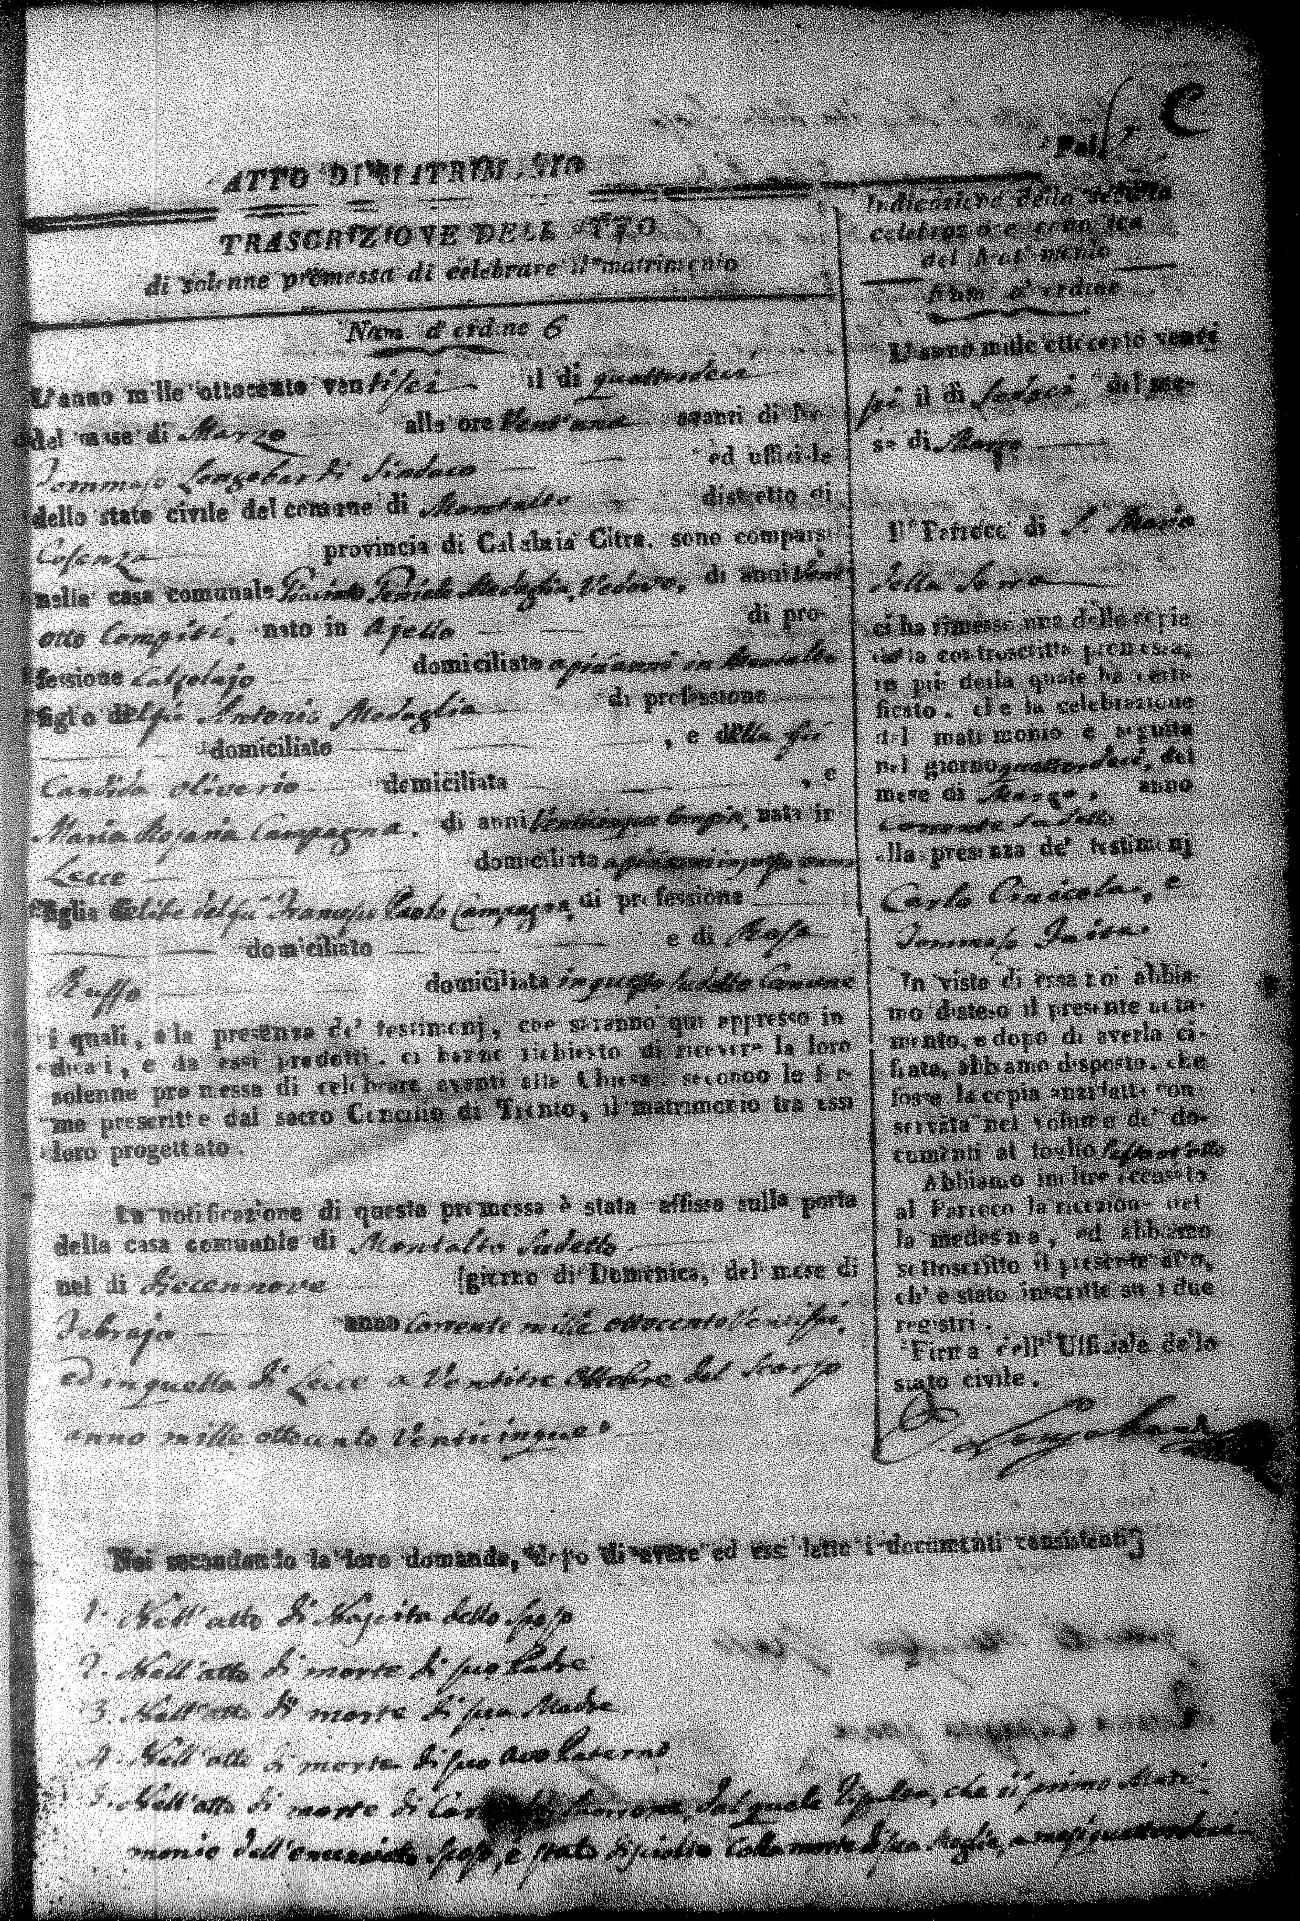 ATTO DI MATRIMONIO
TRASCRIZIONE DELL' ATTO
di solenne promessa di celebrare il matrimonio
Num. d'ordine 6
L'anno mille ottocento ventisei il dì quattordici
del mese di Marzo alle ore Vent'una avanti di Noi
Tommaso Longobardi Sindaco ed ufficiale
dello stato civile del comune di Montalto distretto di
Cosenza provincia di Calabria Citra, sono comparsi
nella casa comunale Medaglia, Vedovo, di anni
otto Compiti, nato in Ajello di pro-
fessione Calzolajo domiciliato in Montalto
figlio del fu Antonio Medaglia di professione
domiciliato , e della fu
Candida Oliverio domiciliata , e
Maria Rosaria Campagna, di anni Venticinque Compiti, nata in
Lecce domiciliata
figlia del fu Paolo Campagna, di professione
domiciliato e di Rosa
Russo domiciliata in questo sudetto Comune
i quali, alla presenza de' testimonj, che saranno qui appresso in-
dicati, e da essi prodotti, ci hanno richiesto di ricevere la loro
solenne promessa di celebrare avanti alla Chiesa, secondo le for-
me prescritte dal sacro Concilio di Trento, il matrimonio tra essi
loro progettato.
La notificazione di questa promessa è stata affissa sulla porta
della casa comunale di Montalto sudetto
nel dì diecennove giorno di Domenica, del mese di
Febrajo anno Corrente mille ottocento Ventisei,
ed in quella di Lecce a Ventitre Ottobre del Scorso
anno mille ottocento Venticinque.
Indicazione della seguita
celebrazione canonica
del Matrimonio
Num. d'ordine
L'anno mille ottocento venti
sei il dì Sedeci del me-
se di Marzo
Il Parroco di S. Maria
della Serra
ci ha rimesso una delle copie
della controscritta promessa,
in piè della quale ha certi-
ficato, che la celebrazione
del matrimonio è seguita
nel giorno quattordeci, del
mese di Marzo, anno
Corrente sudetto
alla presenza de' testimonj
Carlo , e
Tommaso
In vista di essa noi abbia-
mo disteso il presente nota-
mento, e dopo di averla ci-
frata, abbiamo disposto, che
fosse la copia anzidetta con-
servata nel volume de' do-
cumenti al foglio
Abbiamo inoltre accusato
al Parroco la ricezione del-
la medesima, ed abbiamo
sottoscritto il presente atto,
ch'è stato inscritto su i due
registri.
Firma dell' Uffiziale dello
stato civile.
Noi secondando la loro domanda, dopo di avere ad essi letto i documenti consistenti
1. Nell'atto di Nascita dello Sposo
2. Nell'atto di morte di suo Padre
3. Nell'atto di morte di sua Madre
4. Nell'atto di morte di suo Avo Paterno
5. Nell'atto di morte di dal quale risulta, che il primo Matri-
monio dell'enunciato Sposo, è stato disciolto colla morte di sua Moglie,